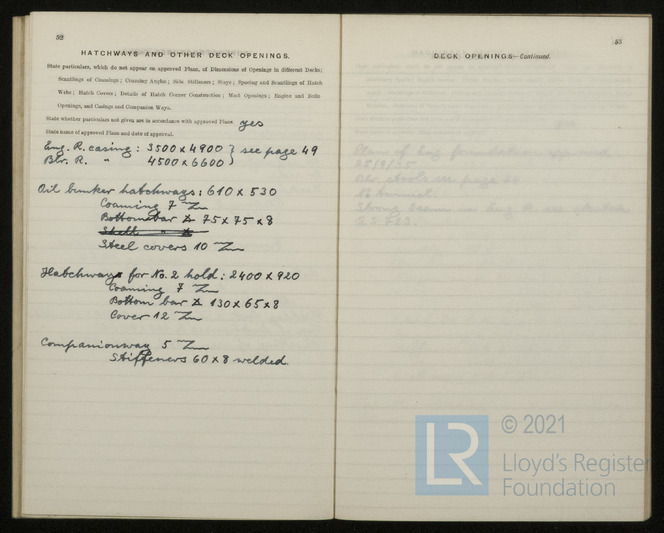 52
HATCHWAYS AND OTHER DECK OPENINGS.
State particulars, which do not appear on approved Plans, of Dimensions of Openings in different Decks;
Scantlings of Coamings; Coaming Angles; Side Stiffeners; Stays; Spacing and Scantlings of Hatch
Webs; Hatch Covers; Details of Hatch Corner Construction; Mast Openings; Engine and Boiler
Openings, and Casings and Companion Ways.
State whether particulars not given are in accordance with approved Plans. yes
State name of approved Plans and date of approval.
Eng. R. casing : 3500 x 4900 } see page 49
Blr. R. " 4500 x 6600 }
Oil bunker hatchways : 610 x 530
Coaming 7 m/m
Bottom bar 75 x 75 x 8
Shell "
Steel covers 10 m/m
Hatchways for No. 2 hold : 2400 x 920
Coaming 7 m/m
Bottom bar 130 x 65 x 8
Cover 12 m/m
Companionway 5 m/m
Stiffeners 60 x 8 welded.
53
DECK OPENINGS—Continued.
LR
© 2021
Lloyd's Register
Foundation